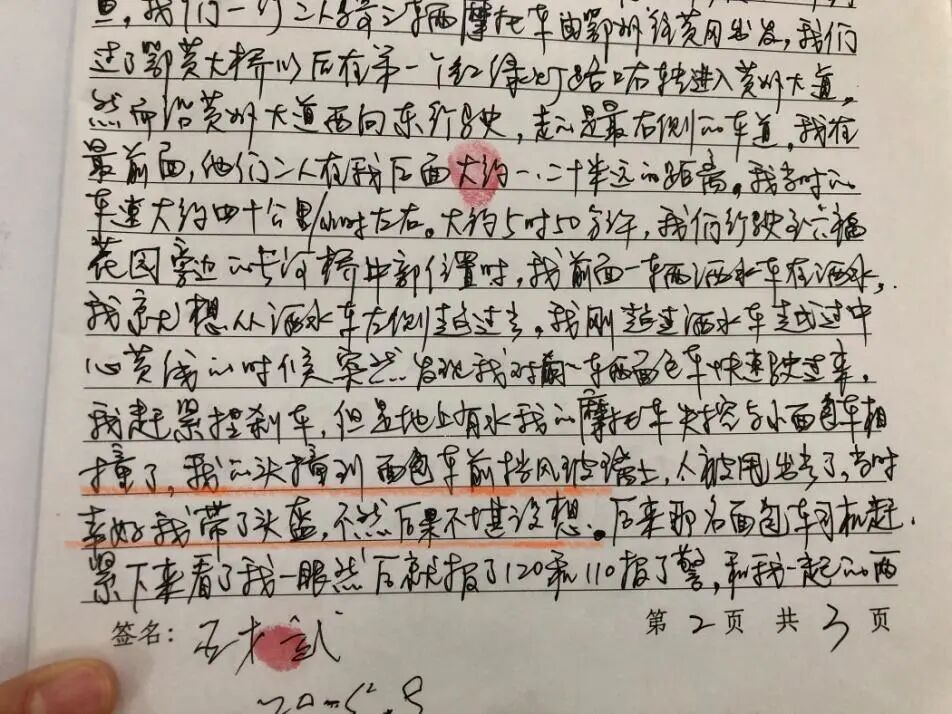 我们一行三人骑三辆摩托车由鄂州往黄冈出发，我们
过了鄂黄大桥以后在第一个红绿灯路口右转进入黄州大道，
然而沿黄州大道西向东行驶，走的是最右侧的车道，我在
最前面，他们二人在我后面大约一、二十米远的距离。我当时的
车速大约四十公里/小时左右。大约5时50分许，我们行驶到六福
花园旁边的长河桥中部位置时，我前面一辆洒水车在洒水，
我就想从洒水车左侧超过去，我刚超过洒水车越过中
心黄线的时候突然发现我对面一辆面包车快速驶过来，
我赶紧捏刹车，但是地上有水我的摩托车失控与小面包车相
撞了，我的头撞到面包车前挡风玻璃上，人被甩出去了，当时
幸好我带了头盔，不然后果不堪设想。后来那名面包车司机赶
紧下来看了我一眼然后就报了120和110报了警，和我一起的两
签名：
第2页 共3页